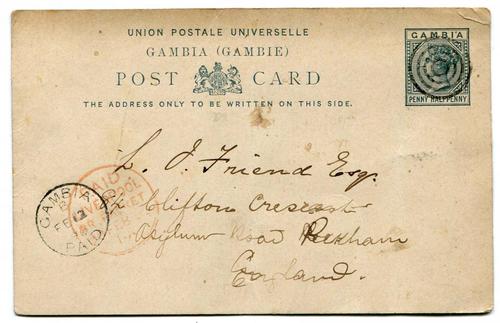 UNION POSTALE UNIVERSELLE
GAMBIA (GAMBIE)
POST CARD
THE ADDRESS ONLY TO BE WRITTEN ON THIS SIDE.
GAMBIA
PENNY HALFPENNY
L. J. Friend Esq.
Clifton Crescent
Asylum Road Peckham
England.
GAMBIA
FE 12
PAID
PAID
LIVERPOOL
BR PACKET